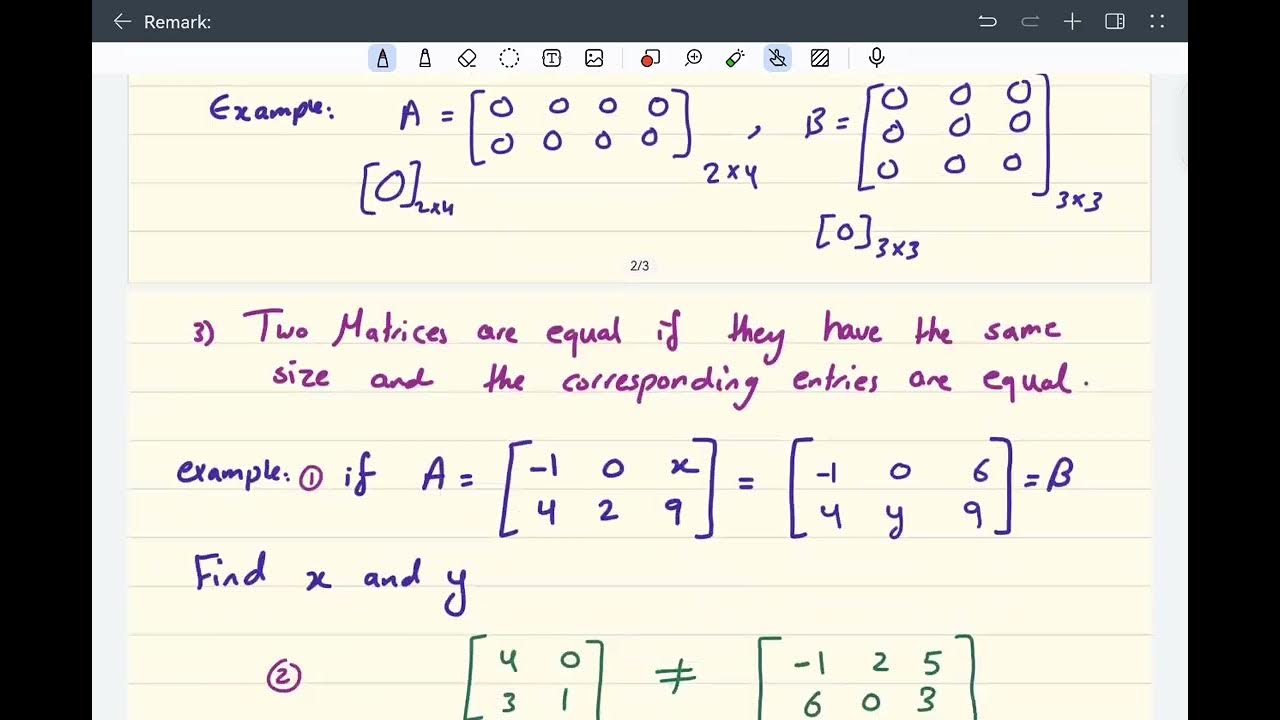 Remark:
Example: A = [0 0 0 0
0 0 0 0] 2×4 , B = [0 0 0
0 0 0
0 0 0] 3×3
[0] 2×4
[0] 3×3
2/3
3) Two Matrices are equal if they have the same
size and the corresponding entries are equal.
example: ① if A = [-1 0 x
4 2 9] = [-1 0 6
4 y 9] = B
Find x and y
② [4 0
3 1] ≠ [-1 2 5
6 0 3]